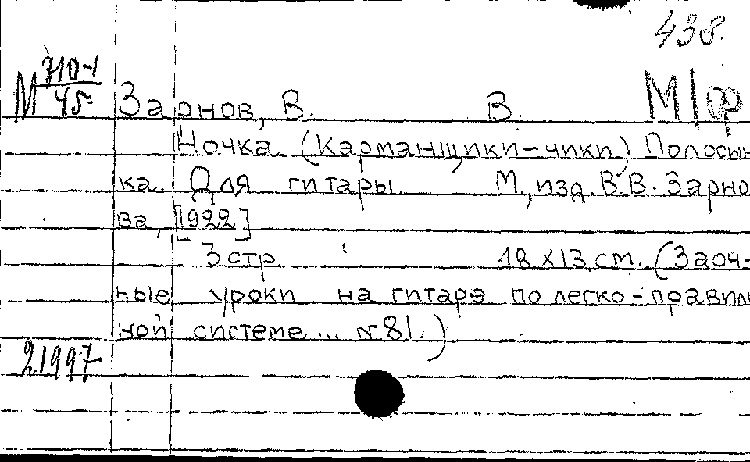 438.
М 710-1/45 Зарнов, В. В. М/ф
Ночка (Карманщики-чики) Полосын-
ка. Для гитары. М., изд. В.В. Зарно-
ва, [1922]
3 стр. 18х13 см. (Заоч-
ные уроки на гитаре по легко-правиль-
ной системе... №81.)
21997